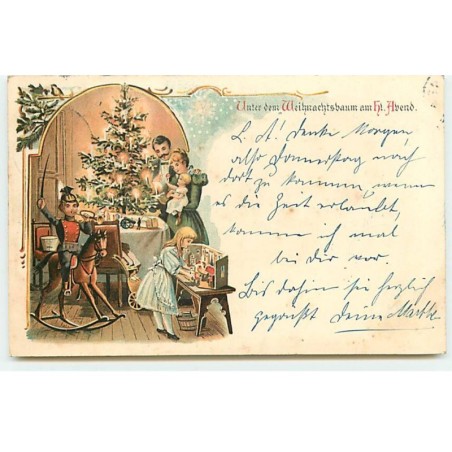 Unter dem Weihnachtsbaum am hl. Abend.
L. A! Denke Morgen,
also Donnerstag nach
dort zu kommen, wenn
es die Zeit erlaubt,
komme ich mal
bei dir vor.
Bis dahin sei herzlich
gegrüßt Deine